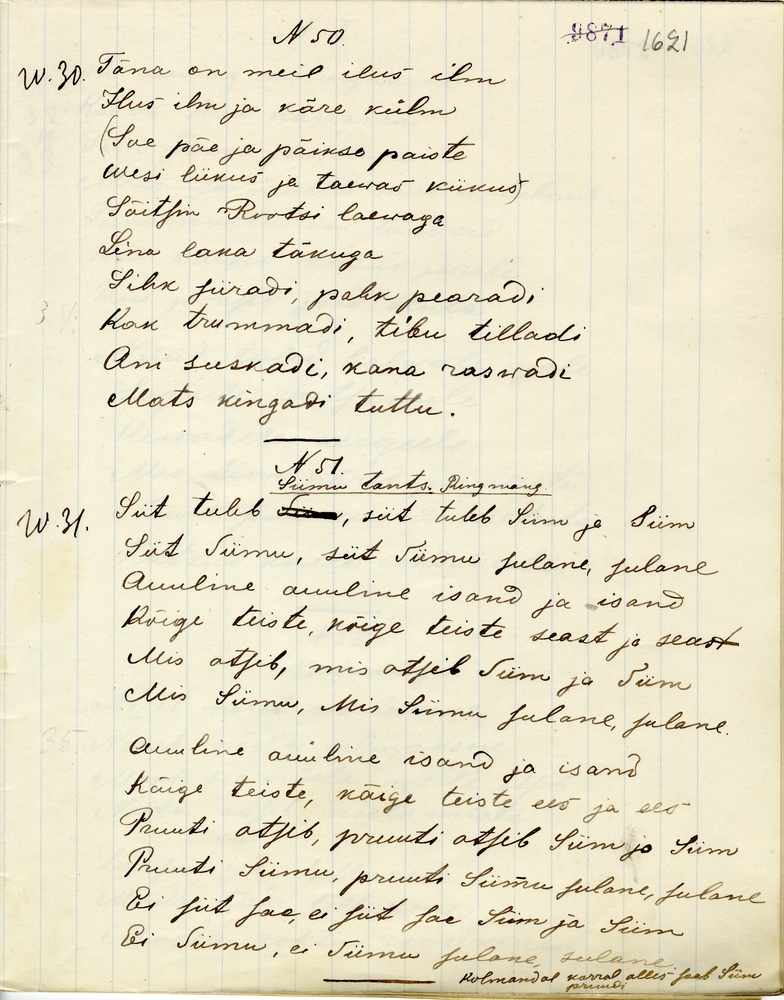 N 50.
9871 1621
W. 30. Täna on meil ilus ilm
Ilus ilm ja käre külm
(Soe päe ja päikse paiste
Wesi liikus ja taewas kiikus)
Sõitsin Rootsi laewaga
Lina laka täkuga
Sihk siiradi, pahk pearadi
Kak trummadi, tibu tilladi
Ani suskadi, kana raswadi
Mats kingadi tuttu.
N 51.
Siimu tants. Ringmäng.
W. 31. Siit tuleb Siim, siit tuleb Siim ja Siim
Siit Siimu, siit Siimu sulane, sulane
Auuline auuline isand ja isand
Kõige teiste, kõige teiste seast ja seast
Mis otsib, mis otsib Siim ja Siim
Mis Siimu, Mis Siimu sulane, sulane.
Auuline auuline isand ja isand
Kõige teiste, kõige teiste ees ja ees
Pruuti otsib, pruuti otsib Siim ja Siim
Pruuti Siimu, pruuti Siimu sulane, sulane
Ei siit sae, ei siit sae Siim ja Siim
Ei Siimu, ei Siimu sulane, sulane.
Kolmandal korral alles saeb Siim
pruudi